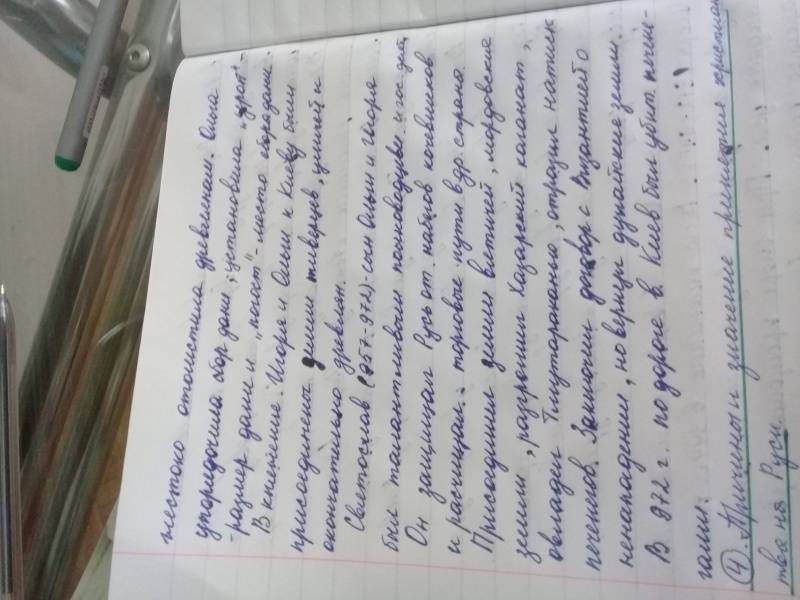 жестоко отомстила древлянам. Ольга
упорядочила сбор дани, установила „урок"-
-размер дани и „погост"-место сбора дани.
В княжение Игоря и Ольги к Киеву были
присоединены земли тиверцев, уличей и
окончательно древлян.
Светослав (957-972)- сын Ольги и Игоря.
был талантливым полководцем и гос. деят.
Он защищал Русь от набегов кочевников
и расчищал торговые пути в др. страны.
Присоединил земли вятичей, мордовские
земли, разгромил Хазарский каганат,
овладел Тмутараканью, отразил натиск
печенегов. Заключил договор с Византией о
ненападении, но вернул дунайские земли.
В 972 г. по дороге в Киев был убит печене-
гами.
4. Причины и значение принятия христиан
ства на Руси.